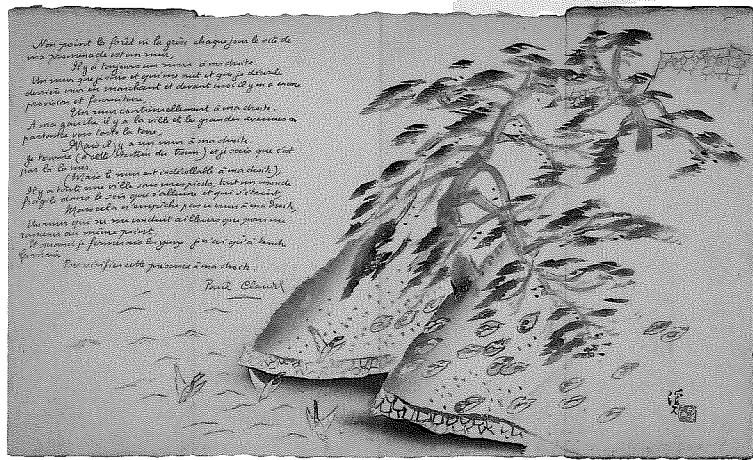 Non point la forêt ni la grève chaque jour le site de
ma promenade est un mur
Il y a toujours un mur à ma droite
Un mur que je suis et qui me suit et que je déroule
derrière moi en marchant et devant moi il y en a encore
provision et fourniture
Un mur continuellement à ma droite.
A ma gauche il y a la ville et les grandes avenues en
partance vers toute la terre,
Mais il y a un mur à ma droite
Je tourne (à cette station du tram) et je sais que c'est
par là la mer
(Mais le mur est à ma droite)
Il y a toute une ville tout un monde
Mais cela n'empêche pas ce mur à ma droite
Un mur qui ne me conduit ailleurs que pour me
ramener au même point
Et quand je fermerais les yeux je n'ai qu'à tendre
la main
Pour vérifier cette présence à ma droite.
Paul Claudel